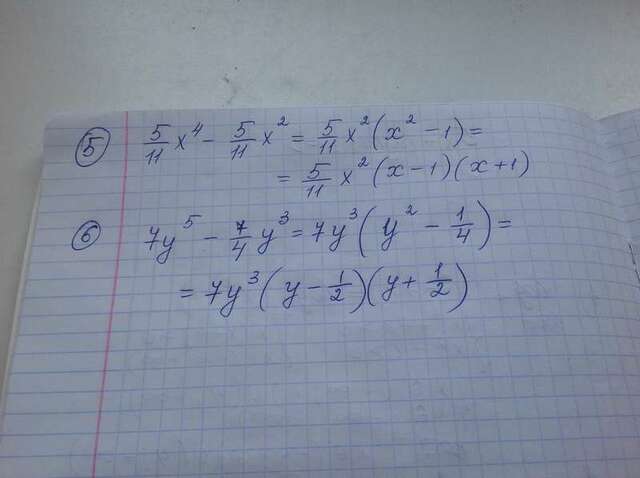 ⑤ 5/11 x⁴ - 5/11 x² = 5/11 x² (x² - 1) =
= 5/11 x² (x - 1)(x + 1)
⑥ 7y⁵ - 7/4 y³ = 7y³ (y² - 1/4) =
= 7y³ (y - 1/2)(y + 1/2)